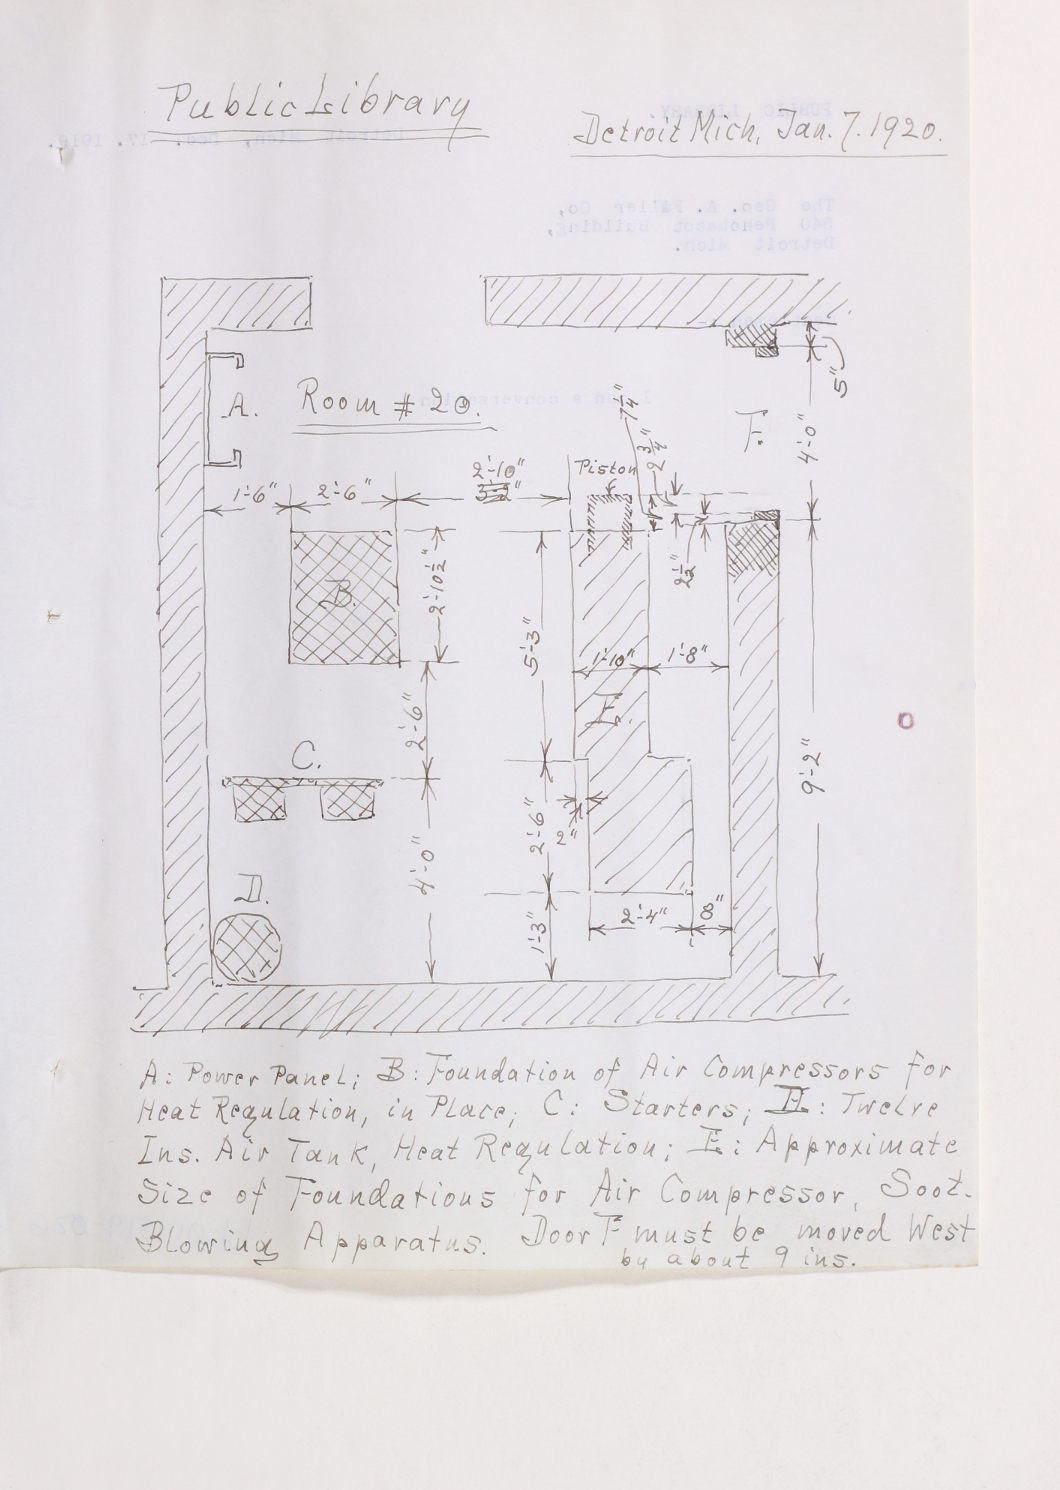 Public Library
Detroit Mich, Jan. 7. 1920.
PUBLIC LIBRARY.
Detroit Mich, Dec. 17. 1919.
The Geo. A.
540 Penobscot Building,
Detroit Mich.
5"
A.
Room # 20.
F.
4'-0"
1/4"
2 3/4"
Piston
1'-6"
2'-6"
2'-10"
3'-2"
B.
2'-10 1/2"
2 1/2"
5'-3"
1'-10"
1'-8"
E.
2'-6"
C.
9'-2"
2'-6"
2"
4'-0"
D.
2'-4"
8"
1'-3"
A: Power Panel; B: Foundation of Air Compressors for
Heat Regulation, in Place; C: Starters; D: Twelve
Ins. Air Tank, Heat Regulation; E: Approximate
Size of Foundations for Air Compressor, Soot-
Blowing Apparatus. Door F must be moved West
by about 9 ins.